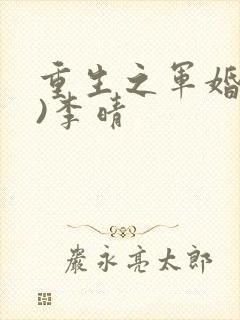 重生之军婚
)李晴
嚴永亮太郎